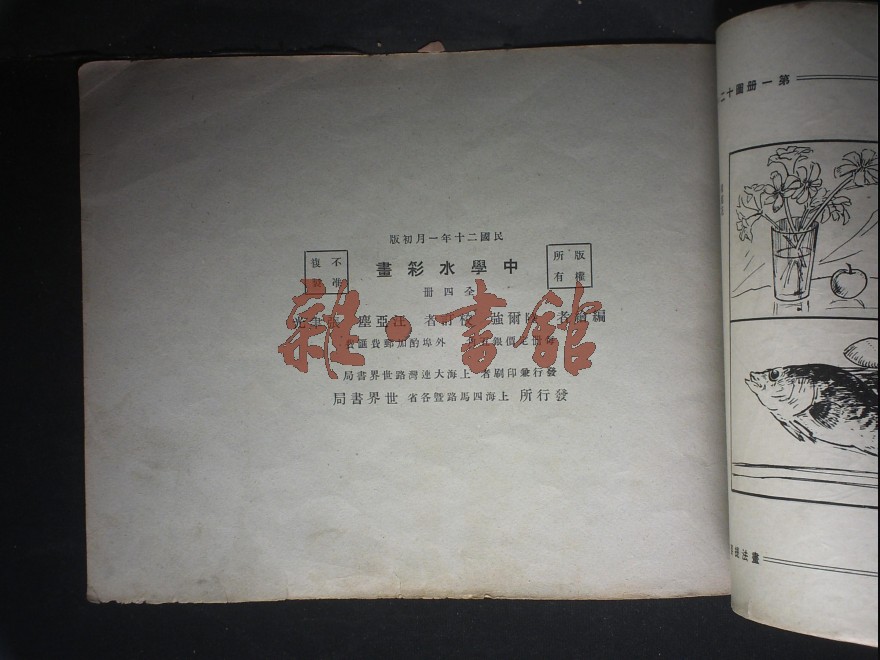 民國二十年一月初版
版權所有
中學水彩畫
不准
全四冊
編繪者 爾強 校訂者 汪亞塵
價銀 外埠酌加郵費匯費
發行兼印刷者 上海大連灣路世界書局
發行所 上海四馬路暨各省 世界書局
第一冊圖十二
畫法提
雜·書館